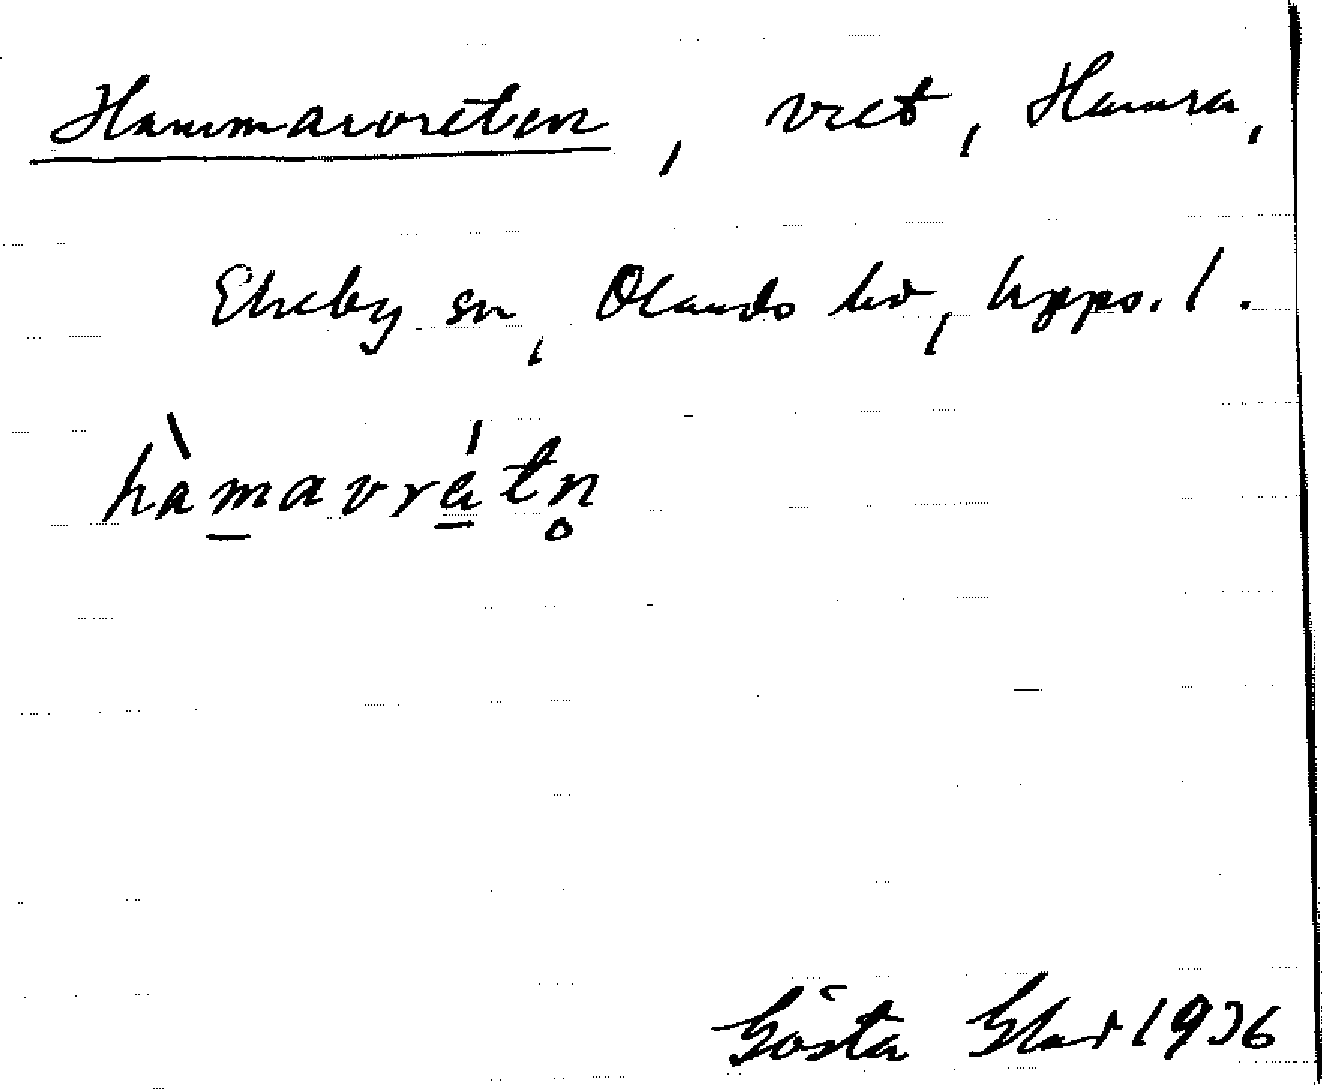 Hammarvreten, vret, Hamra,
Ekeby sn, Olands hd, Upps. l.
hàmavrätn̥
Gösta Elar 1936